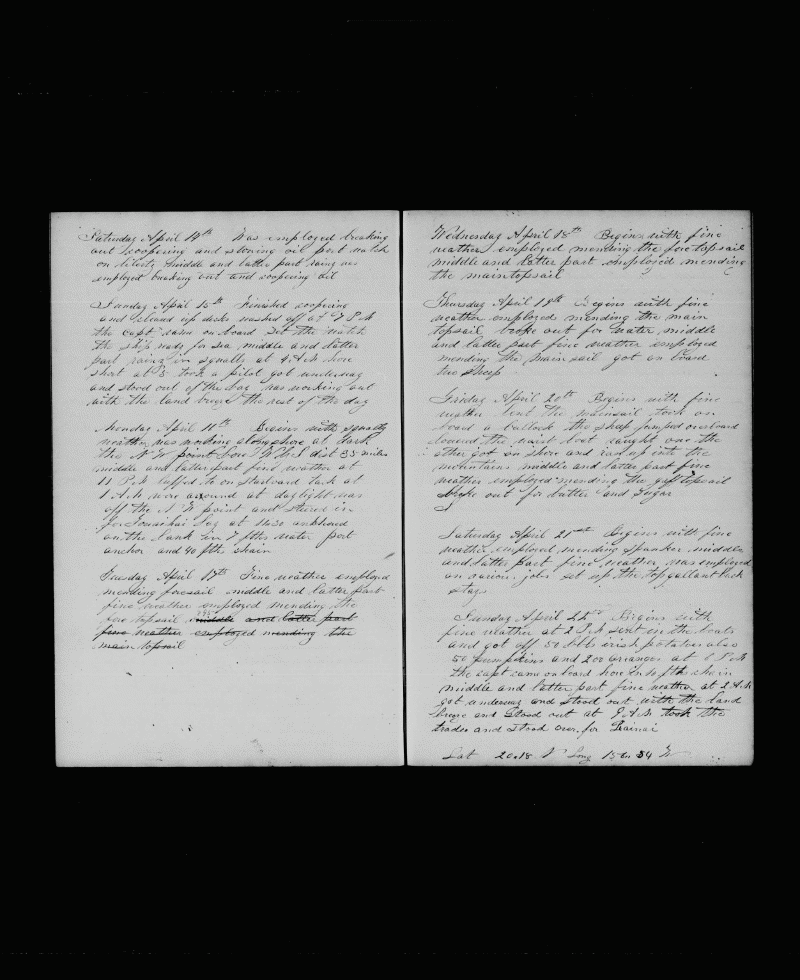 Saturday April 14th Was employed breaking
out coopering and stowing oil port watch
on liberty middle and latter part rainy
employed breaking out and coopering oil
Sunday April 15th Finished coopering
and cleared up decks washed off at 7 P.M
the Capt. came on board set the watch
the ship ready for sea middle and latter
part rainy in squalls at 4 A.M hove
short at 5 took a pilot got underway
and stood out of the bay was working out
with the land breeze the rest of the day
Monday April 16th Begins with squally
weather was working alongshore at dark
the N W point bore dist 35 miles
middle and latter part fine weather at
11 P.M luffed to on starboard tack at
1 A.M wore around at daylight was
off the N W point and steered in
for at 10.30 anchored
on the bank in 7 fths water port
anchor and 40 fth chain
Tuesday April 17th Fine weather employed
mending foresail middle and latter part
fine weather employed mending the
fore topsail middle and latter part
fine weather employed mending the
main topsail
Wednesday April 18th Begins with fine
weather employed mending the fore topsail
middle and latter part employed mending
the maintopsail
Thursday April 19th Begins with fine
weather employed mending the main
topsail broke out for water middle
and latter part fine weather employed
mending the mainsail got on board
two sheep
Friday April 20th Begins with fine
weather bent the mainsail took on
board a bullock the sheep jumped overboard
lowered the waist boat caught one the
other got on shore and ran up into the
mountains middle and latter part fine
weather employed mending the gaff topsail
broke out for butter and sugar
Saturday April 21st Begins with fine
weather employed mending spanker middle
and latter part fine weather was employed
on various jobs set up the topgallant back
stays
Sunday April 22d Begins with
fine weather at 2 P.M sent in the boats
and got off 50 bbls irish potatoes also
50 pumpkins and 200 oranges at 6 P.M
the capt came on board hove in 10 fth chain
middle and latter part fine weather at 2 A.M
got underway and stood out with the land
breeze and stood out at 9 A.M took the
trades and stood over for
Lat 20.18 N Long 156 54 W